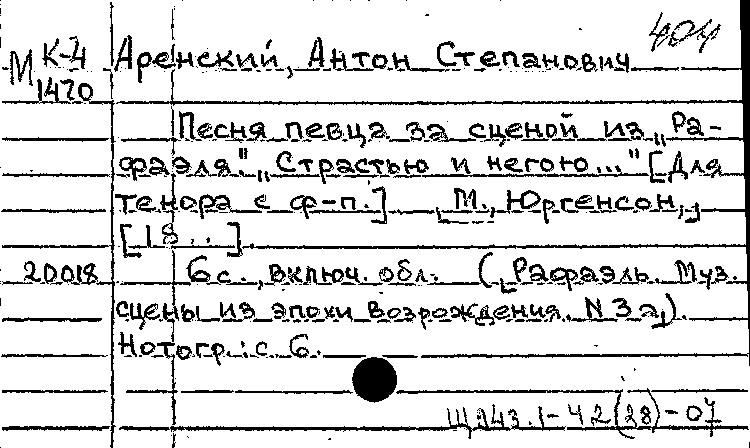 404
М К-4 Аренский, Антон Степанович
1470
Песня певца за сценой из „Ра-
фаэля". „Страстью и негою..." [Для
тенора с ф-п.] М., Юргенсон,
[18..].
20018 6 с., включ. обл. (Рафаэль. Муз.
сцены из эпохи Возрождения. N 3а).
Нотогр.: с. 6.
Щ943.1-42(28)-07